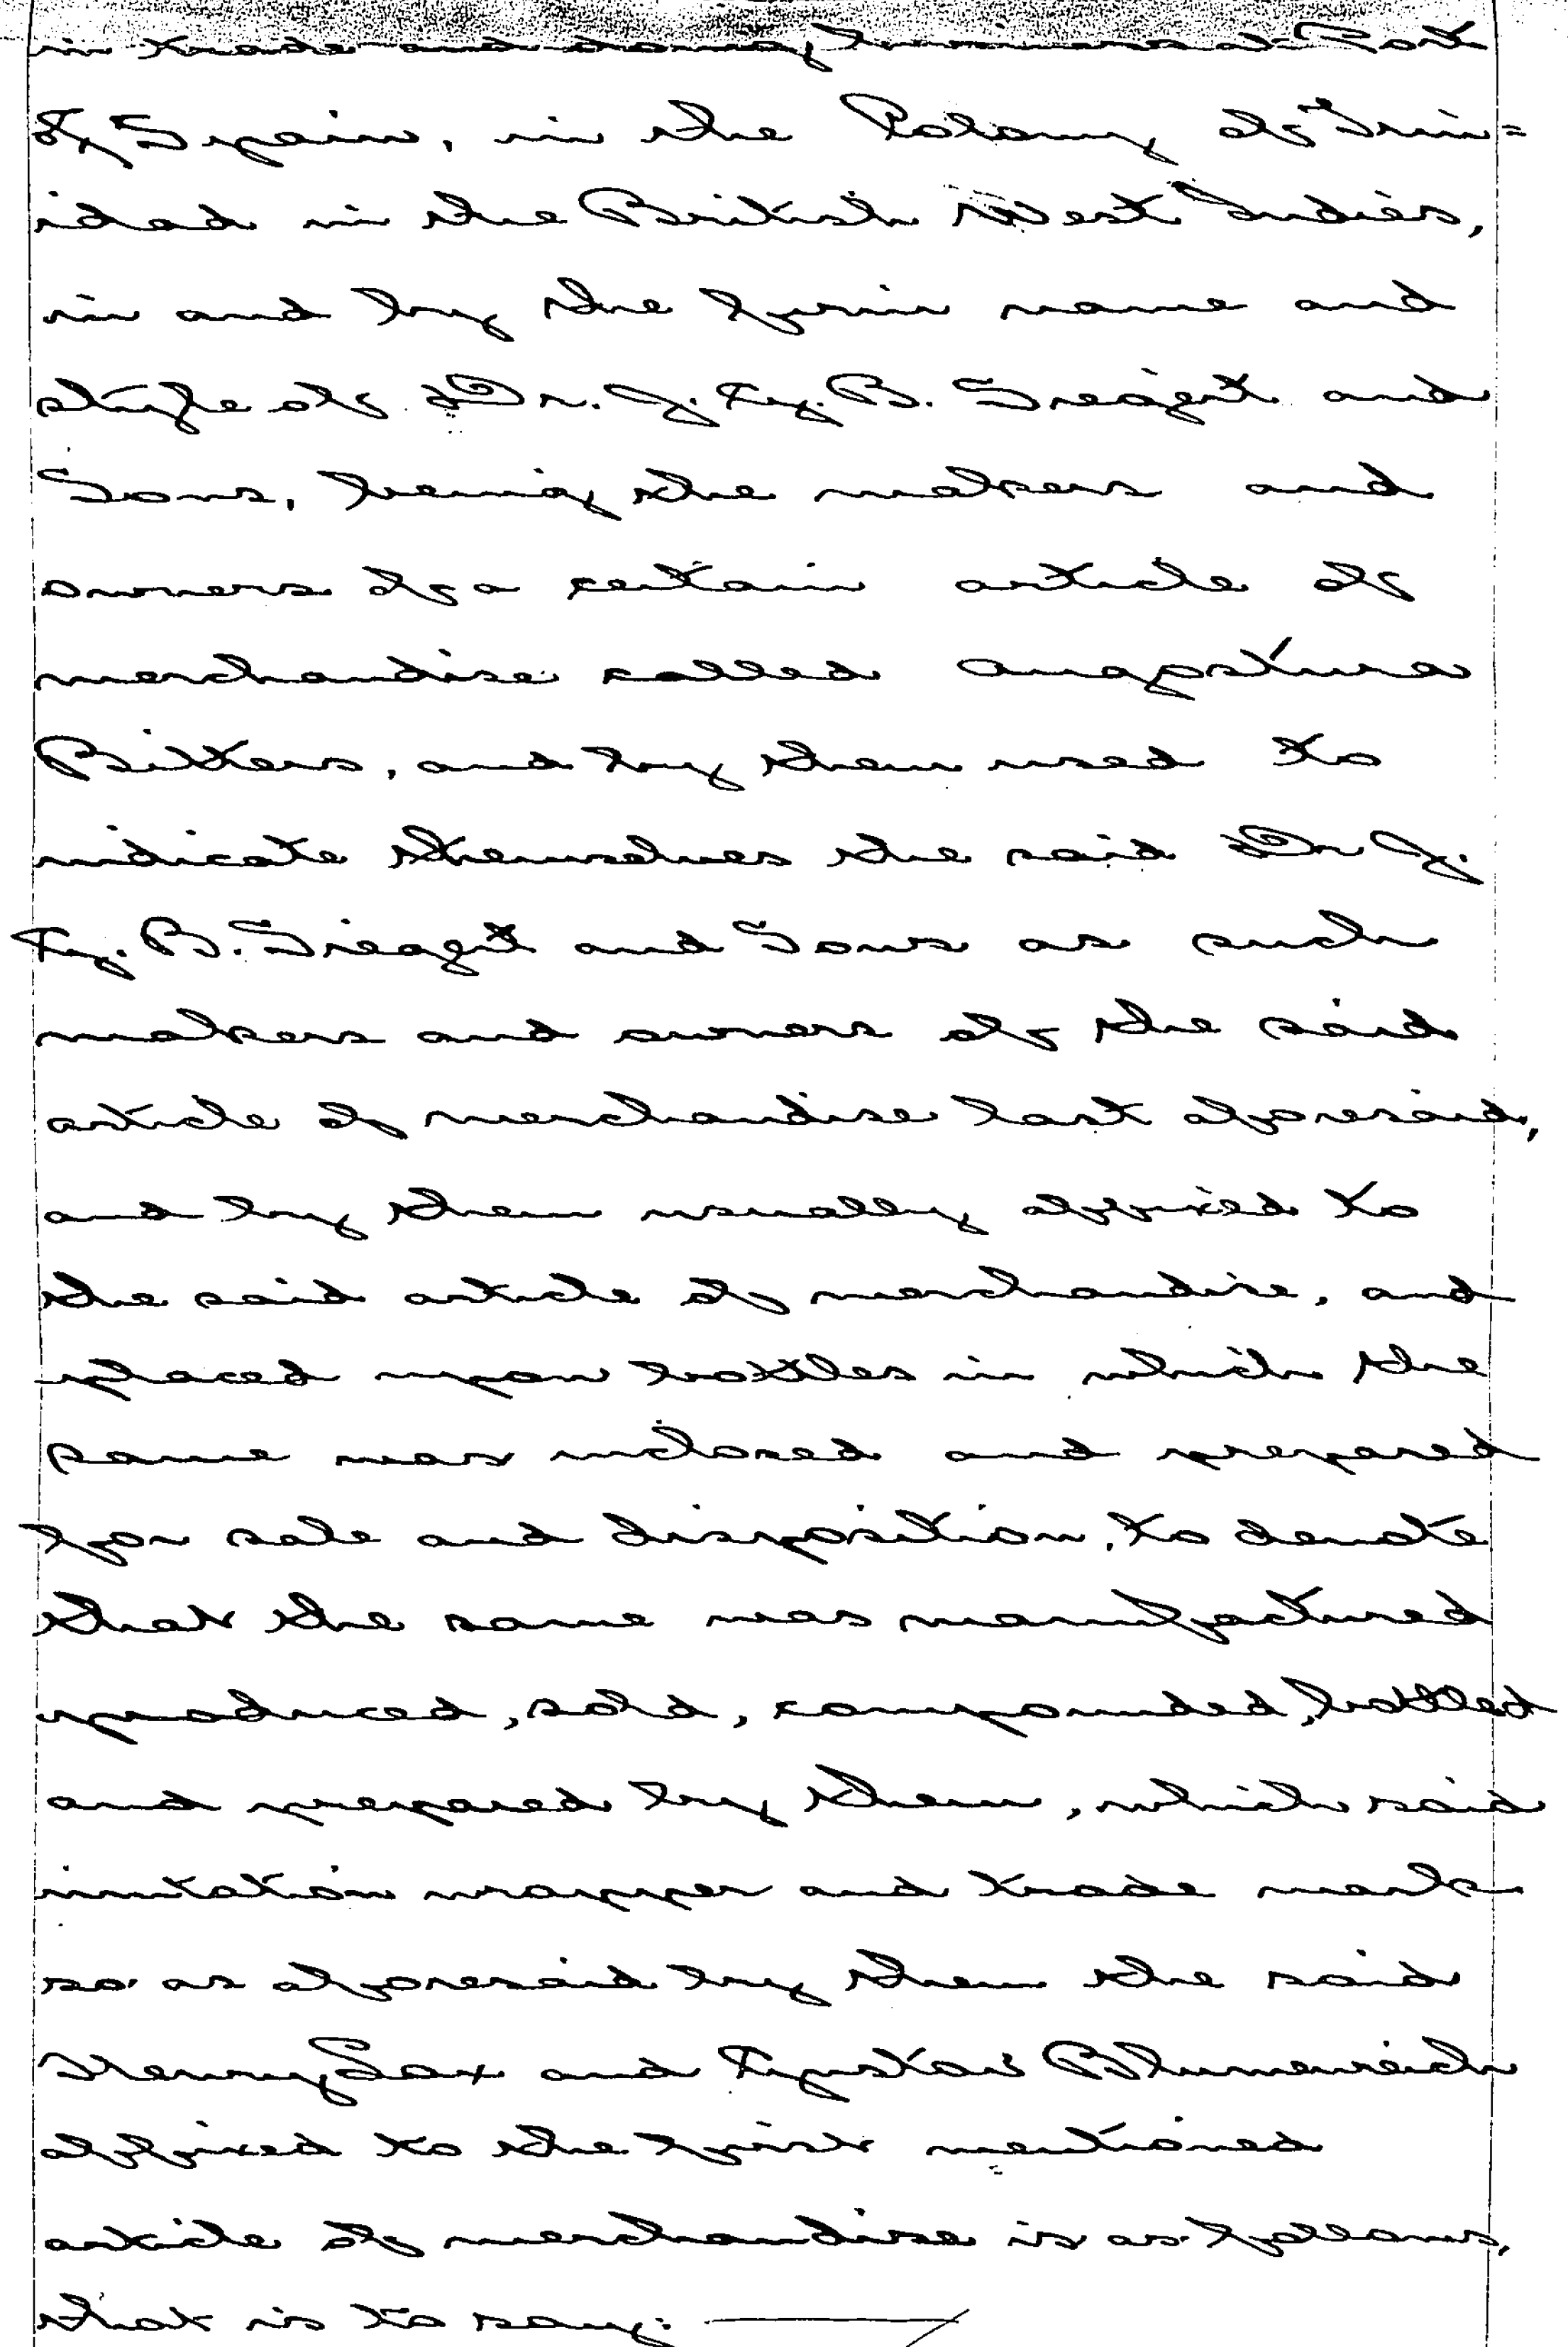 in trade and doing business at Port
of Spain, in the Colony of Trin=
idad in the British West Indies,
in and by the firm name and
style of Dr. J. G. B. Siegert and
Sons, being the makers and
owners of a certain article of
merchandise called Angostura
Bitters, and by them used to
indicate themselves the said Dr J.
G. B. Siegert and Sons as such
makers and owners of the said
article of merchandise last aforesaid,
and by them usually affixed to
the said article of merchandise, and
placed upon bottles in which the
same was inclosed and prepared
for sale and disposition, to denote
that the same was manufactured
produced, sold, compounded, bottled
and prepared by them, which said
imitation wrapper and trade mark
so as aforesaid by them the said
Henry Sax and Gustav Blumenreich
affixed to the first mentioned
article of merchandise is as follows,
that is to say: